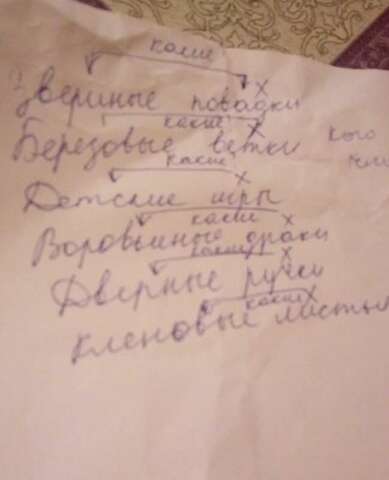 какие
х
Звериные повадки
какие
х
Березовые ветки кого
какие
х
Детские игры
какие
х
Воровьиные драки
какие
х
Дверные ручки
какие х
кленовые листья